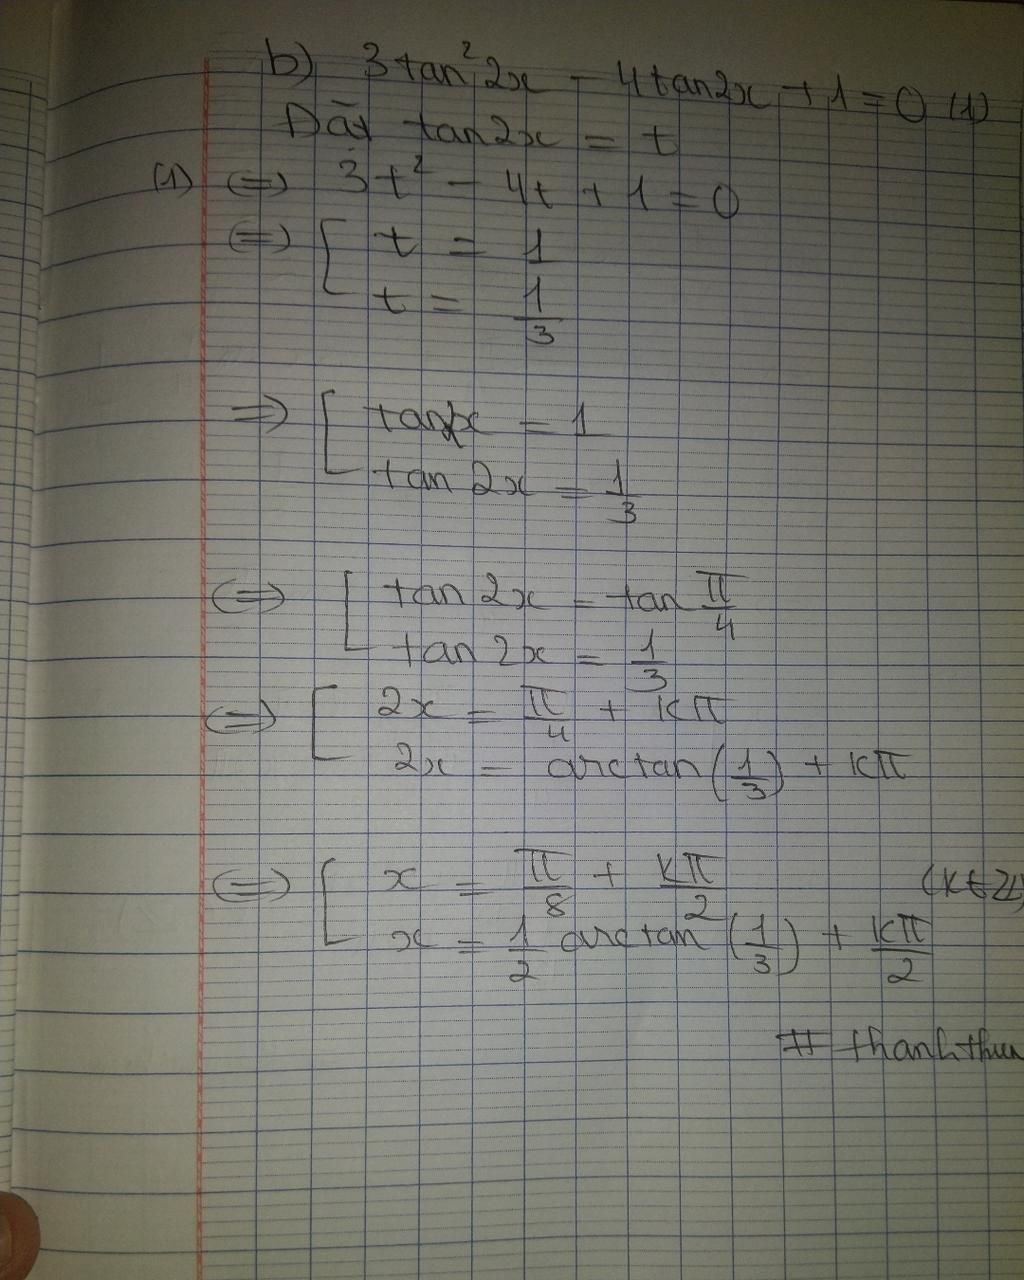 b) 3tan²2x - 4tan2x + 1 = 0 (1)
Đặt tan2x = t
(1) <=> 3t² - 4t + 1 = 0
<=> [ t = 1
t = 1/3
=> [ tan2x = 1
tan 2x = 1/3
<=> [ tan 2x = tan π/4
tan 2x = 1/3
<=> [ 2x = π/4 + kπ
2x = arctan(1/3) + kπ
<=> [ x = π/8 + kπ/2 (k∈Z)
x = 1/2 arctan (1/3) + kπ/2